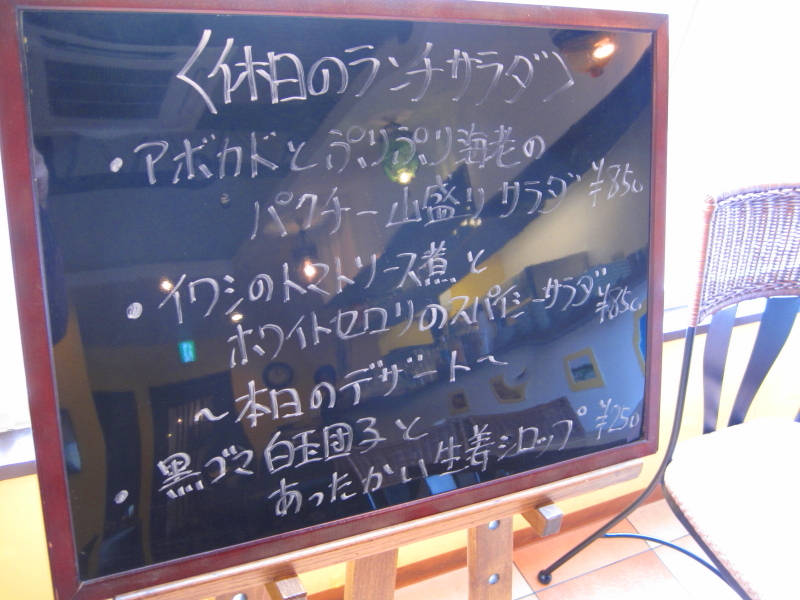 〈休日のランチサラダ〉
・アボカドとぷりぷり海老の
パクチー山盛りサラダ ¥850
・イワシのトマトソース煮と
ホワイトセロリのスパイシーサラダ ¥850
～本日のデザート～
・黒ゴマ白玉団子と
あったかい生姜シロップ ¥250